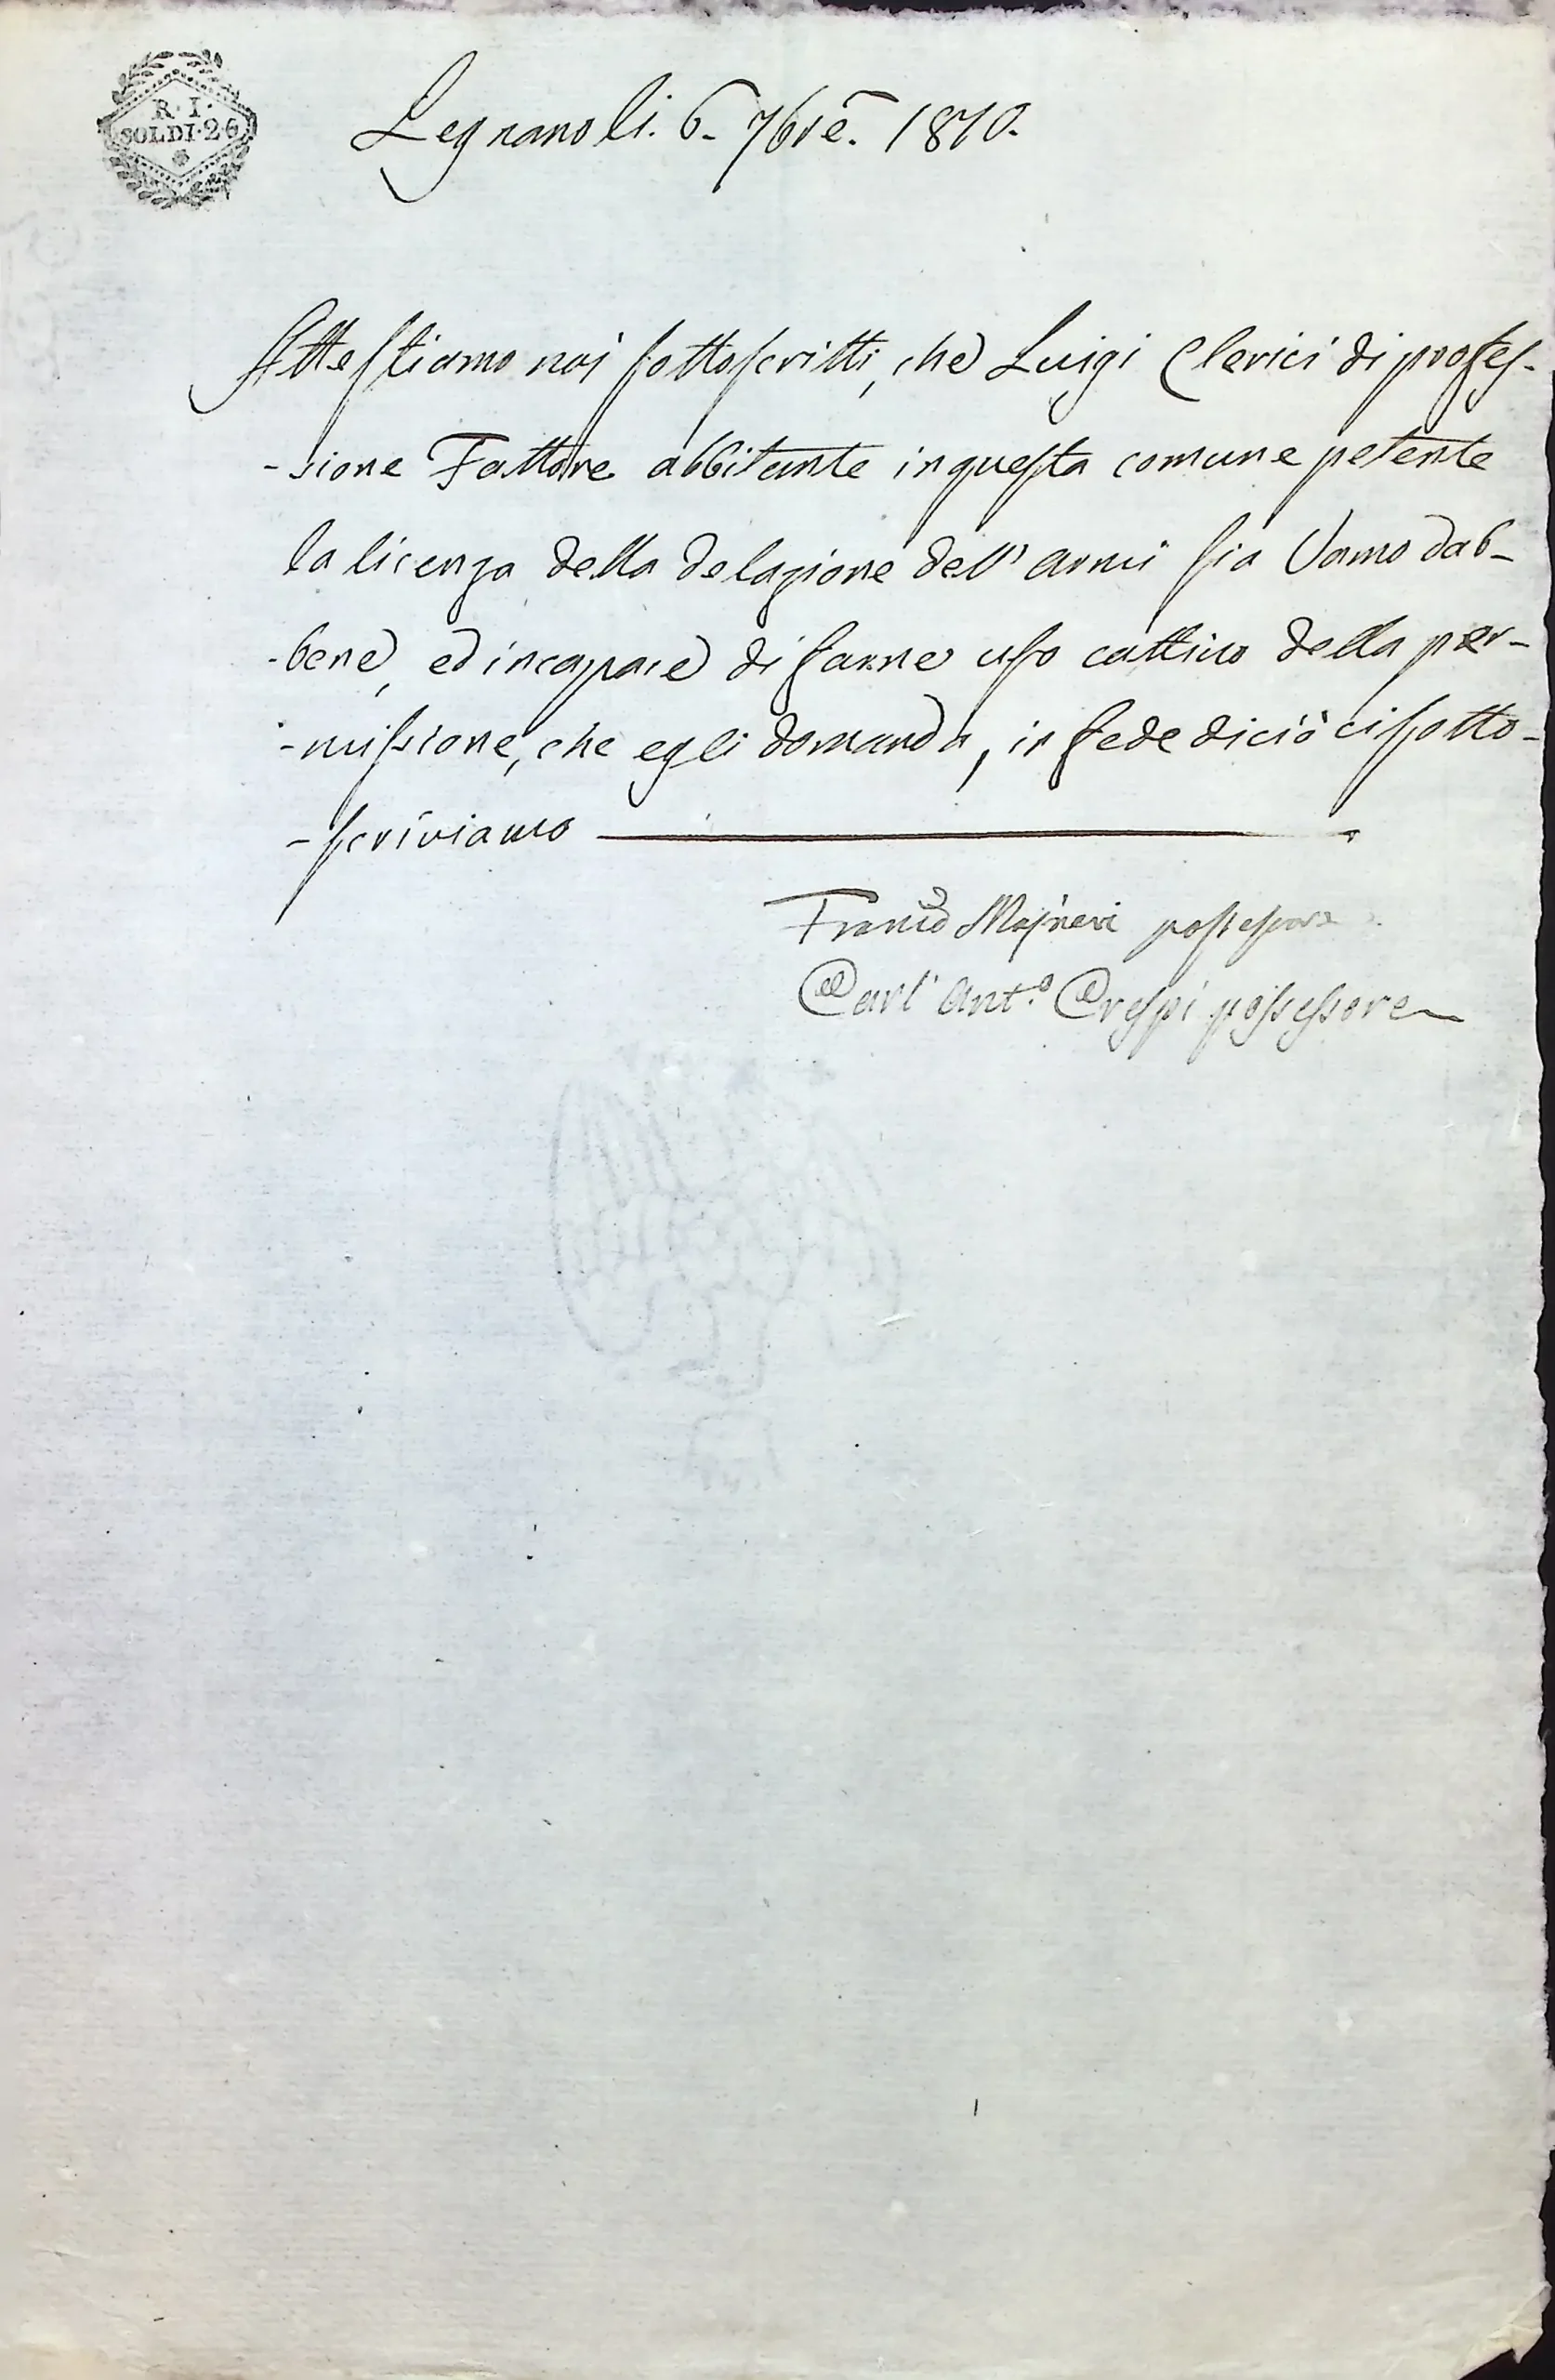 R. I.
SOLDI. 26
Legnano li. 6. 7bre. 1810.
Attestiamo noi sottoscritti, che Luigi Clerici di profes-
-sione Fattore abbitante in questa comune petente
la licenza della delazione dell' armi sia Uomo dab-
-bene, ed incapace di farne uso cattivo della per-
-missione, che egli domanda, in fede di ciò ci sotto-
-scriviamo
Franco possessore
Carl' Ant.o Crespi possessore